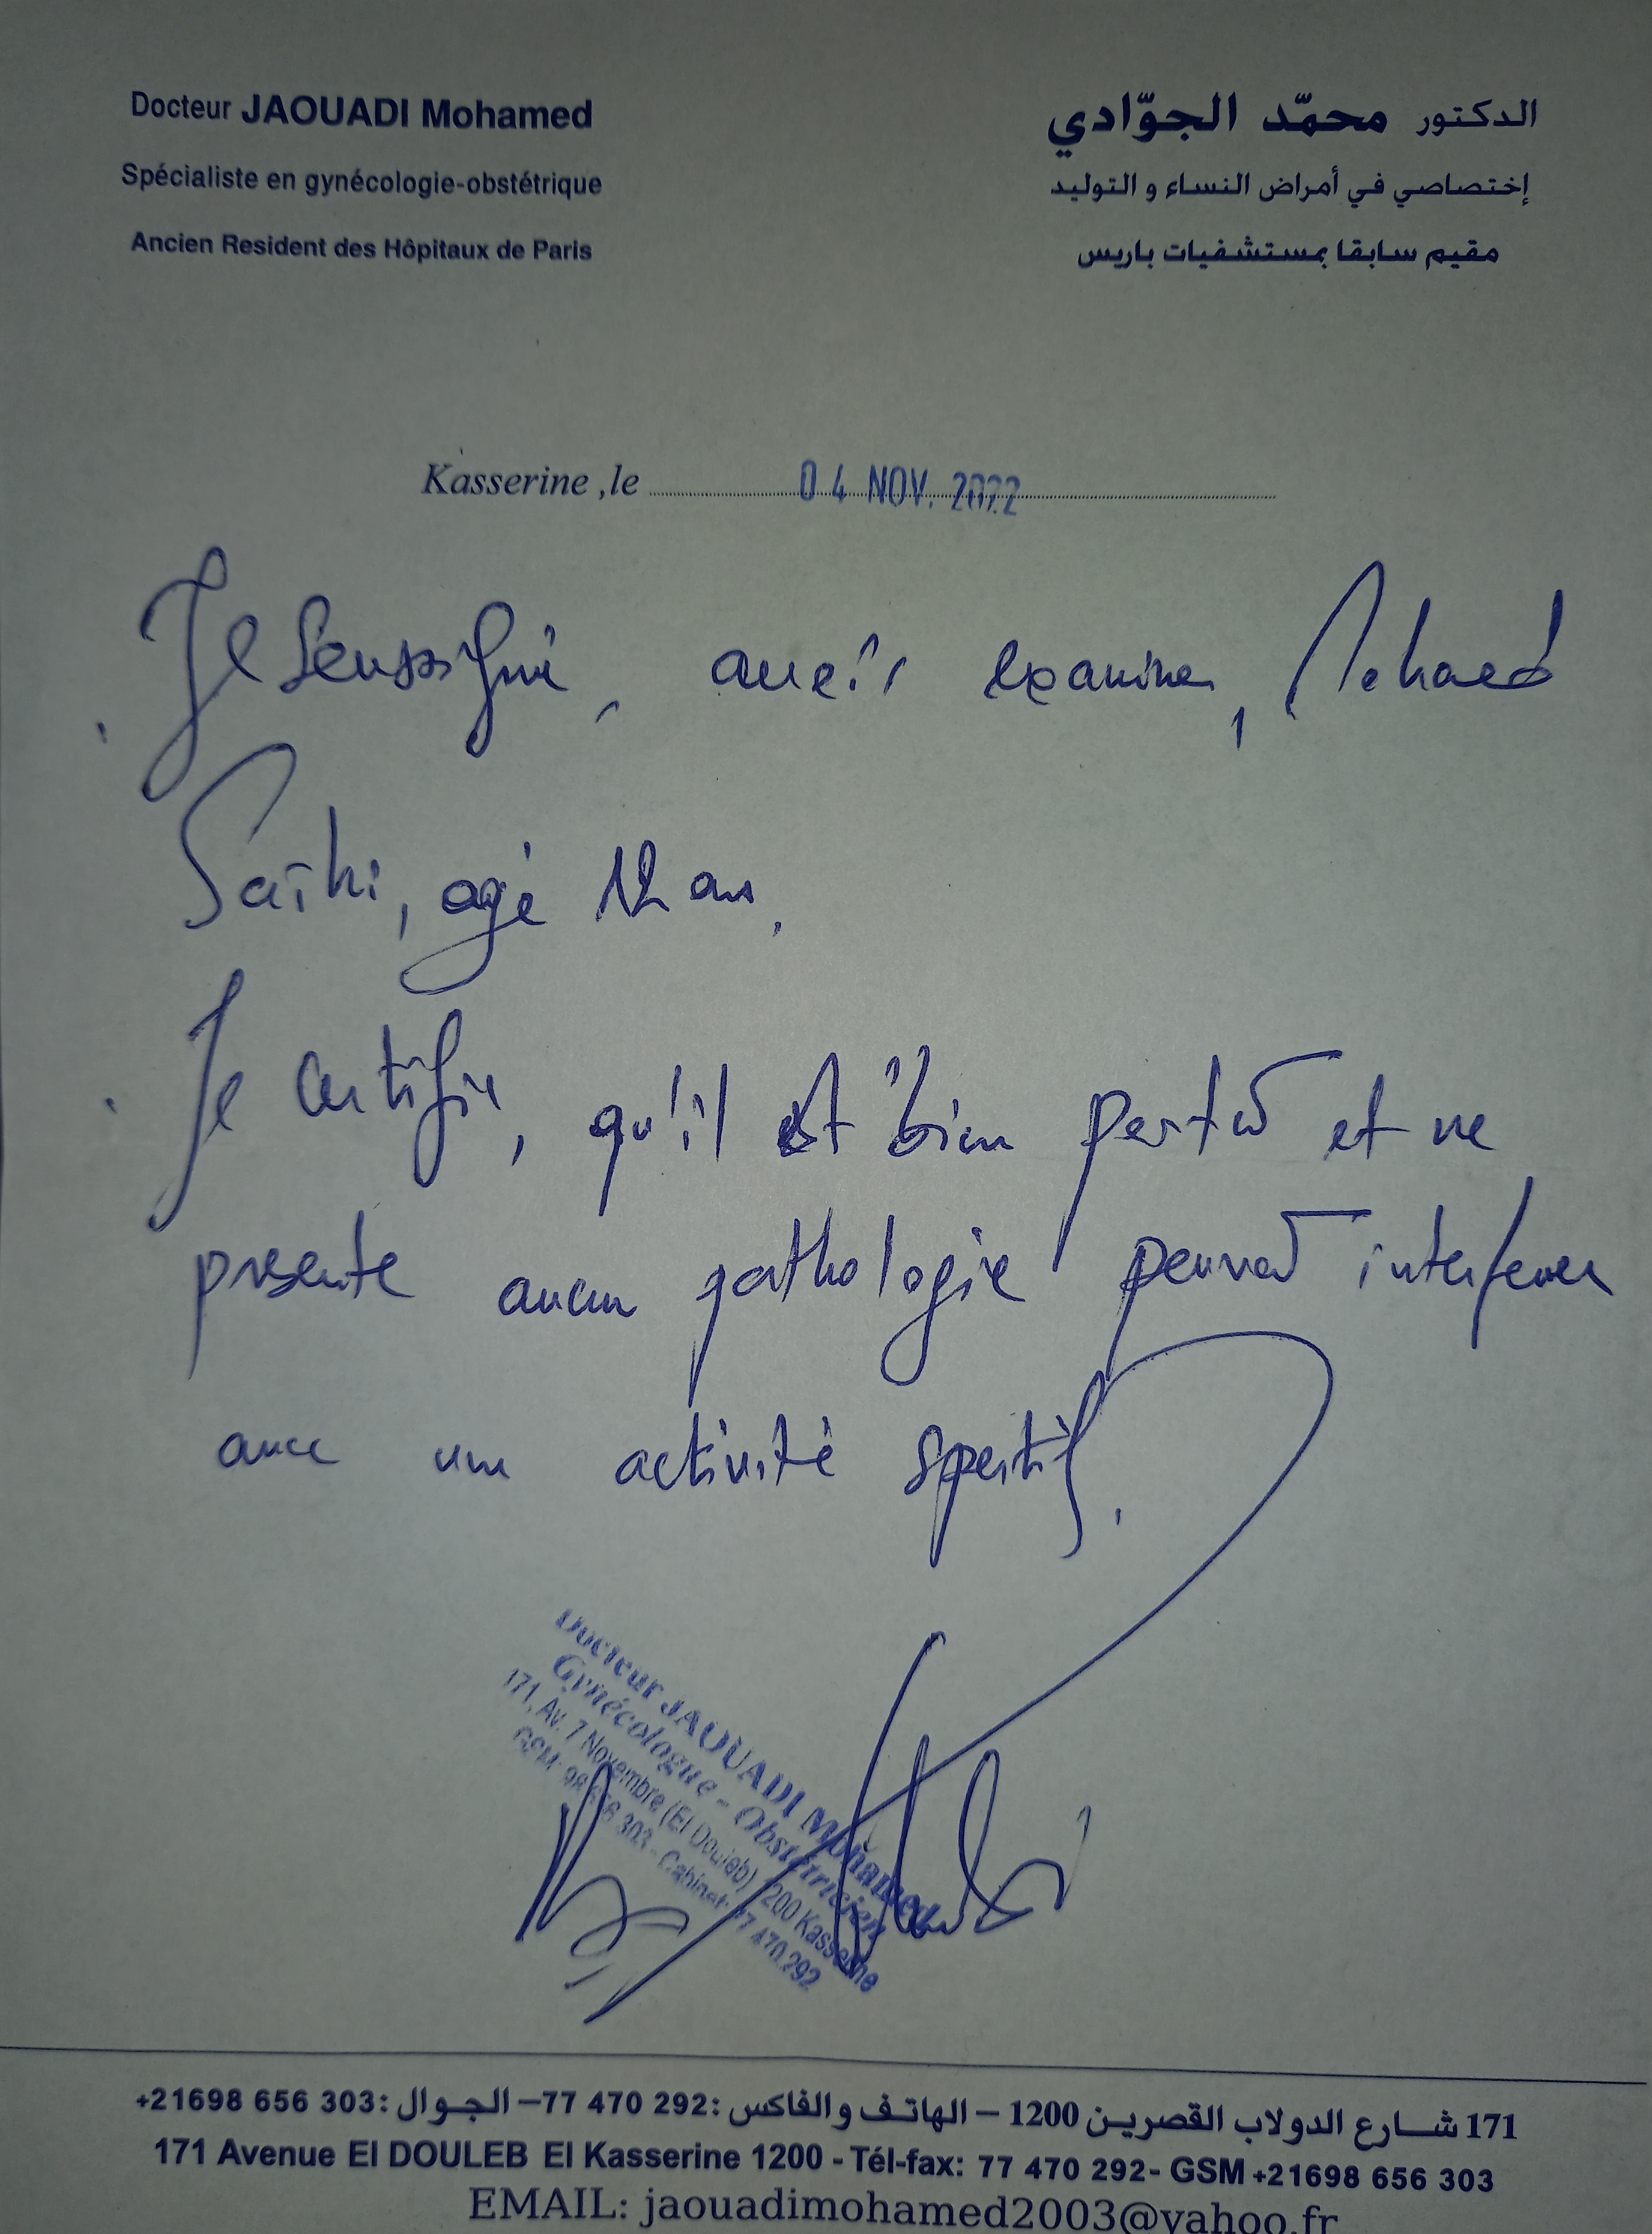 Docteur JAOUADI Mohamed
Spécialiste en gynécologie-obstétrique
Ancien Resident des Hôpitaux de Paris
الدكتور محمّد الجوّادي
إختصاصي في أمراض النساء و التوليد
مقيم سابقا بمستشفيات باريس
Kasserine ,le 04 NOV. 2022
Je soussigné, avoir examiner, Mohaed
Saihi, agé 12 ans.
Je certifie, qu'il est bien portant et ne
presente aucun pathologie pouvant interferer
avec une activité sportif.
Docteur JAOUADI Mohamed
Gynécologue - Obstétricien
171, Av. 7 Novembre (El Douleb) 1200 Kasserine
GSM: 98 656 303 - Cabinet: 77 470 292
171 شارع الدولاب القصرين 1200 – الهاتف والفاكس :292 470 77– الجوال :303 656 21698+
171 Avenue El DOULEB El Kasserine 1200 - Tél-fax: 77 470 292- GSM +21698 656 303
EMAIL: jaouadimohamed2003@yahoo.fr